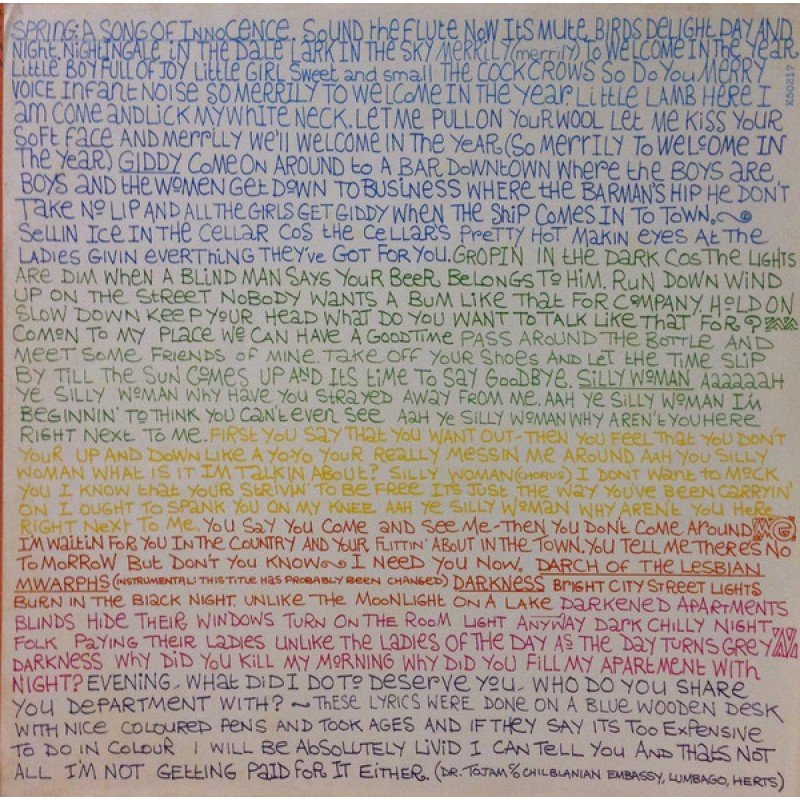 SPRING: A SONG OF INNOCENCE. SOUND the FLUTE NOW ITS MUTE. BIRDS DELIGHT DAY AND
NIGHT. NIGHTINGALE IN THE DALE LARK IN THE SKY MERRILY (merrily) TO WELCOME IN THE YEAR.
LITTLE BOY FULL OF JOY LITTLE GIRL SWEET and small THE COCK CROWS SO DO YOU MERRY
VOICE INFANT NOISE SO MERRILY TO WELCOME IN THE YEAR. LITTLE LAMB HERE I
am COME AND LICK MY WHITE NECK. LET ME PULL ON YOUR WOOL LET ME KISS YOUR
SOFT FACE AND MERRILLY WE'LL WELCOME IN THE YEAR (SO MERRILY TO WELCOME IN
THE YEAR) GIDDY COME ON AROUND to A BAR DOWNTOWN WHERE the BOYS ARE
BOYS AND the WOMEN GET DOWN TO BUSINESS WHERE THE BARMAN'S HIP HE DON'T
TAKE NO LIP AND ALL THE GIRLS GET GIDDY WHEN THE SHIP COMES IN TO TOWN.
SELLIN ICE IN THE CELLAR COS the CELLAR'S PRETTY HOT MAKIN EYES AT THE
LADIES GIVIN EVERTHING THEY'VE GOT FOR YOU. GROPIN IN the DARK COS THE LIGHTS
ARE DIM WHEN A BLIND MAN SAYS YOUR BEER BELONGS TO HIM. RUN DOWN WIND
UP ON THE STREET NOBODY WANTS A BUM LIKE THAT FOR COMPANY HOLD ON
SLOW DOWN KEEP YOUR HEAD WHAT DO YOU WANT TO TALK LIKE THAT FOR?
COMON TO MY PLACE WE CAN HAVE A GOODTIME PASS AROUND THE BOTTLE AND
MEET SOME FRIENDS OF MINE TAKE OFF YOUR SHOES AND LET THE TIME SLIP
BY TILL THE SUN COMES UP AND ITS tIME TO SAY GOODBYE. SILLY WOMAN AAAAAAH
YE SILLY WOMAN WHY HAVE YOU STRAYED AWAY FROM ME. AAH YE SILLY WOMAN I'M
BEGINNIN' TO THINK YOU CAN'T EVEN SEE AAH YE SILLY WOMAN WHY AREN'T YOU HERE
RIGHT NEXT TO ME. FIRST YOU SAY THAT YOU WANT OUT-THEN YOU FEEL THAT YOU DON'T
YOUR UP AND DOWN LIKE A YOYO YOUR REALLY MESSIN ME AROUND AAH YOU SILLY
WOMAN WHAT IS IT IM TALKIN ABOUT? SILLY WOMAN (CHORUS) I DONT WANT to MOCK
YOU I KNOW that YOUR STRIVIN' TO BE FREE ITS JUST THE WAY YOU'VE BEEN CARRYIN'
ON I OUGHT TO SPANK YOU ON MY KNEE AAH YE SILLY WOMAN WHY ARENT YOU HERE
RIGHT NEXT TO ME. YOU SAY YOU COME AND SEE ME-THEN YOU DONT COME AROUND
I'M WAITIN FOR YOU IN THE COUNTRY AND YOUR FLITTIN' ABOUT IN THE TOWN. YOU TELL ME THERES NO
TOMORROW BUT DON'T YOU KNOW~ I NEED YOU NOW. DARCH OF THE LESBIAN
MWARPHS (INSTRUMENTAL: THIS TITLE HAS PROBABLY BEEN CHANGED) DARKNESS BRIGHT CITY STREET LIGHTS
BURN IN THE BLACK NIGHT. UNLIKE THE MOONLIGHT ON A LAKE DARKENED APARTMENTS
BLINDS HIDE THEIR WINDOWS TURN ON THE ROOM LIGHT ANYWAY DARK CHILLY NIGHT
FOLK PAYING THEIR LADIES UNLIKE THE LADIES OF THE DAY AS THE DAY TURNS GREY
DARKNESS WHY DID YOU KILL MY MORNING WHY DID YOU FILL MY APARTMENT WITH
NIGHT? EVENING. WHAT DID I DO TO DESERVE YOU. WHO DO YOU SHARE
YOU DEPARTMENT WITH? ~ THESE LYRICS WERE DONE ON A BLUE WOODEN DESK
WITH NICE COLOURED PENS AND TOOK AGES AND IF THEY SAY ITS TOO EXPENSIVE
TO DO IN COLOUR I WILL BE ABSOLUTELY LIVID I CAN TELL YOU AND THATS NOT
ALL I'M NOT GETTING PAID FOR IT EITHER. (DR. TOJAM c/o CHILBLANIAN EMBASSY, LUMBAGO, HERTS)
K50217